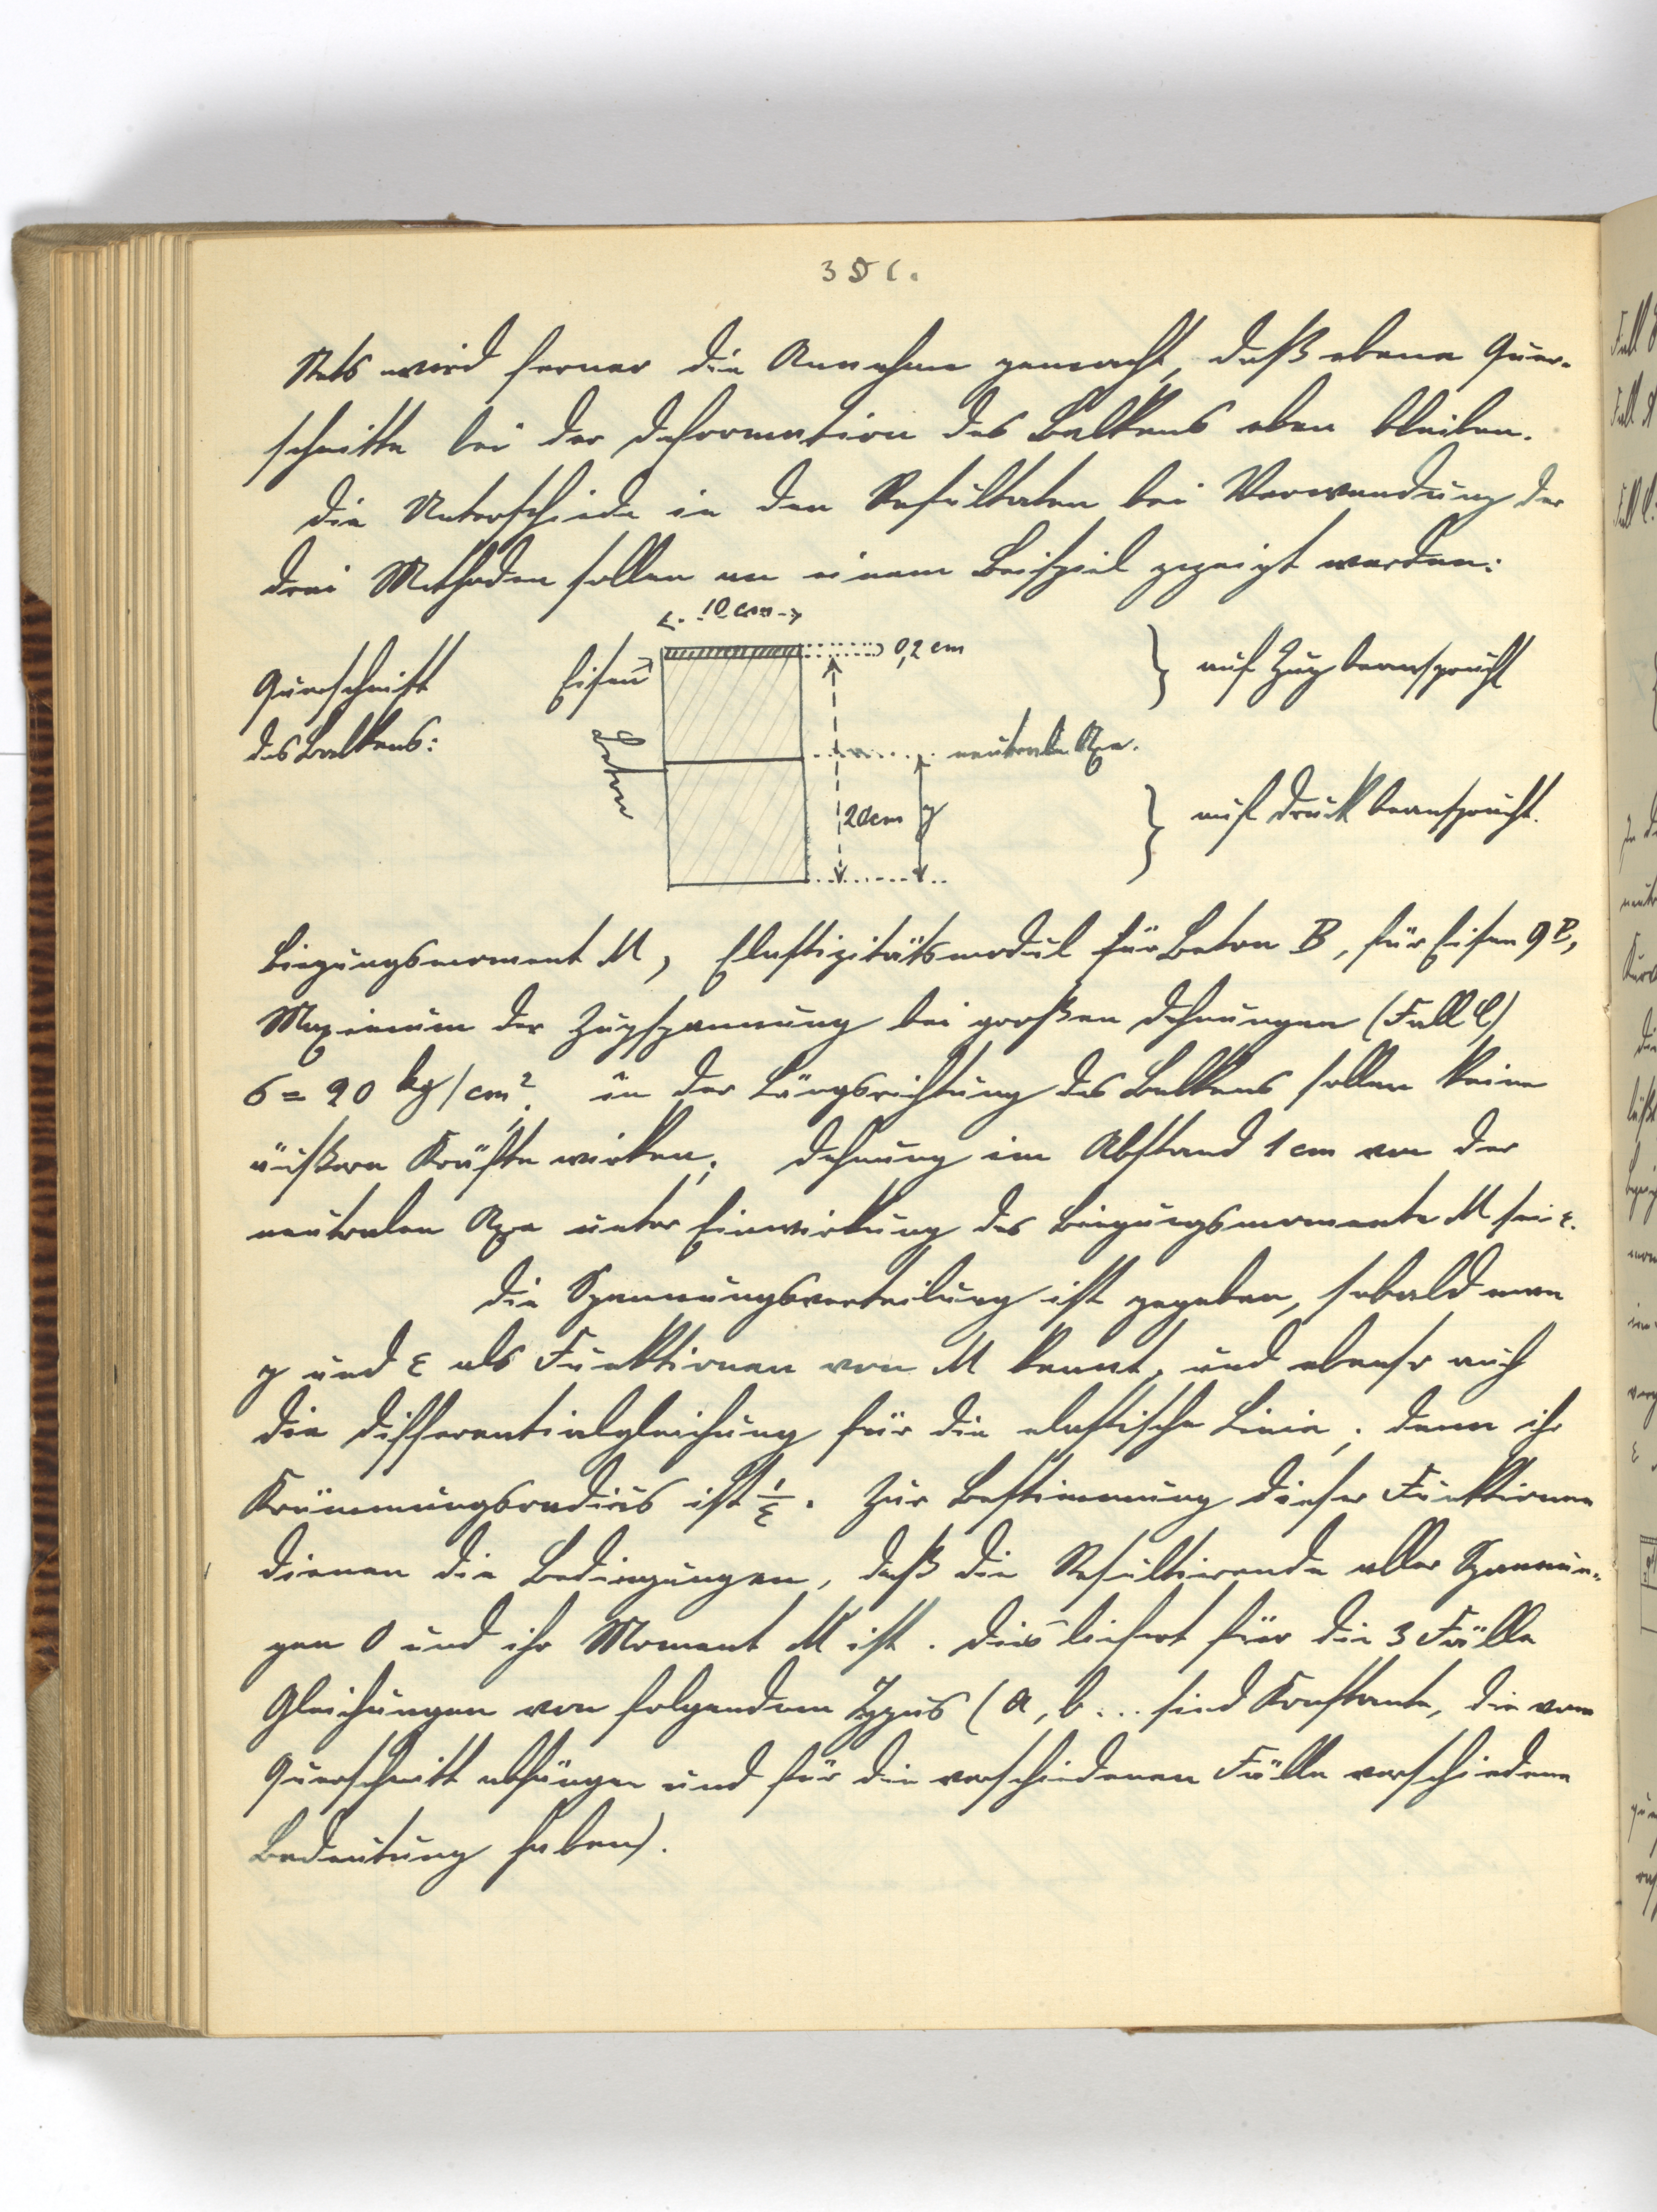 351.
Stets wird ferner die Annahme gemacht, daß ebene Quer-
schnitte bei der Deformation des Balkens eben bleiben.
Die Unterschiede in den Resultaten bei Verwendung der
drei Methoden sollen an einem Beispiel gezeigt werden:
10 cm
Querschnitt
des Balkens:
Eisen
0,2 cm
auf Zug beansprucht
Beton
neutrale Axe.
20cm y
auf Druck beansprucht.
Biegungsmoment M, Elastizitätsmodul für Beton B, für Eisen 9 B,
Maximum der Zugspannung bei großen Dehnungen (Fall C)
σ = 20 kg/cm². in der Längsrichtung des Balkens sollen keine
äußern Kräfte wirken; Dehnung im Abstand 1 cm von der
neutralen Axe unter Einwirkung des Biegungsmoments M sei ε.
Die Spannungsverteilung ist gegeben, sobald man
y und ε als Funktionen von M kennt, und ebenso auch
die Differentialgleichung für die elastische Linie; denn ihr
Krümmungsradius ist 1/ε. Zur Bestimmung dieser Funktionen
dienen die Bedingungen, daß die Resultierende aller Spannun-
gen 0 und ihr Moment M ist. Dies liefert für die 3 Fälle
Gleichungen von folgendem Typus (a, b ... sind Konstante, die vom
Querschnitt abhängen und für die verschiedenen Fälle verschiedene
Bedeutung haben).